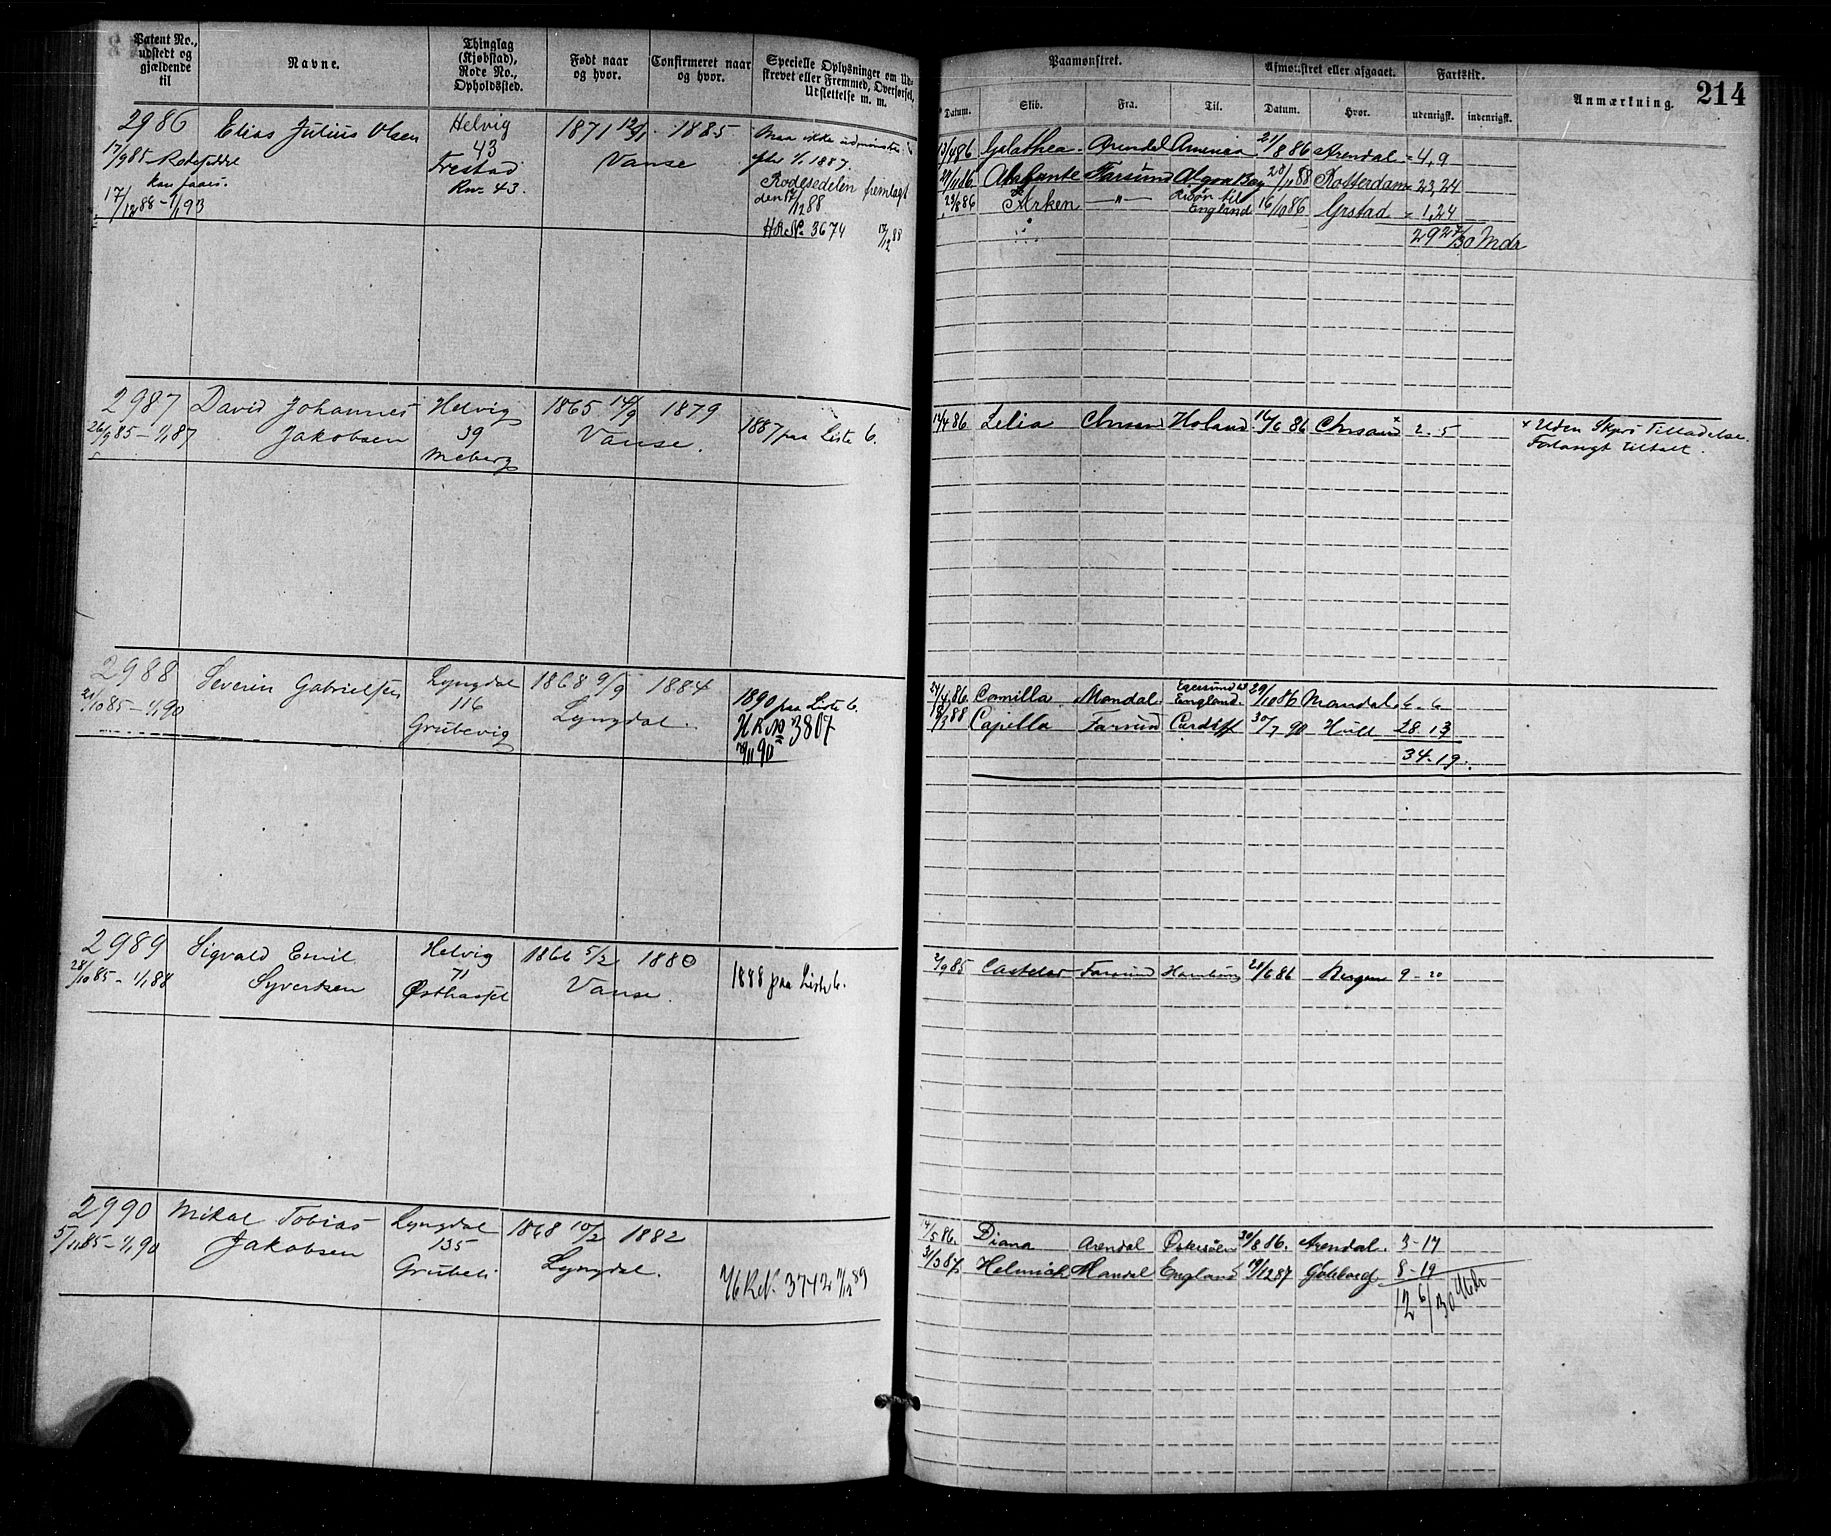 Patent No., udstedt og gjældende til
Navne.
Thinglag (Kjøbstad), Rode No., Opholdssted.
Født naar og hvor.
Confirmeret naar og hvor.
Specielle Oplysninger om Udskrevet eller Fremmed, Overførsel, Udslettelse m. m.
Paamønstret.
Afmønstret eller afgaaet.
Fartstid.
Anmærkning.
214
Datum.
Skib.
Fra.
Til.
Datum.
Hvor.
udenrigsk.
indenrigsk.
2986
Elias Julius Olsen
Helvig
43
1871 12/11
1885
Vanse
Maa ikke udmønstres
efter 1/1 1887.
17/9 85
17/12 88 - 1/1 93
Rno. 43.
Rodesedelen fremlagt
den 17/12 88
H R No. 3674 17/12 88
13/4 86 Galathea Arendal America 21/8 86 Arendal 4,9
Farsund Algoa Bay 20/1 88 Rotterdam 23,24
23/8 86 Arken — " — Risör til England 16/10 86 1,24
29 27/30 Mdr
2987
David Johannes
Jakobsen
26/9 85 - 1/1 87
Helvig
39
Meberg
1865 14/9
1879
Vanse.
1887 paa Liste 6.
14/4 86 Lelia Chrsand Holand 16/6 86 Chrsand x 2 - 5
x Uden Skprs Tilladelse.
Forlangt tiltalt.
2988
Severin Gabrielsen
21/10 85 - 1/1 90
Lyngdal
116
Grubevig
1868 9/9
1884
Lyngdal.
1890 paa Liste 6.
H R No 3807
24/4 86 Camilla Mandal Egersund England 29/10 86 Mandal 6 - 6
18/3 88 Capella Farsund Cardiff 30/7 90 Hull 28 13
34 - 19.
2989
Sigvald Emil
Syvertsen
28/10 85 - 1/1 88
Helvig
71
Østhassel
1866 5/2
1880
Vanse.
1888 paa Liste 6.
2/9 85 Castelar Farsund Hamburg 21/6 86 Bergen 9 - 20
2990
Mikal Tobias
Jakobsen
5/11 85 - 1/1 90
Lyngdal
135
1868 10/2
1882
Lyngdal.
3742 11/12 89
14/5 86. Diana Arendal 30/8 86. Arendal. 3 - 17
31/3 87 Helmich Mandal England 19/12 87 Göteborg 8 - 19
12 6/30 Mdr